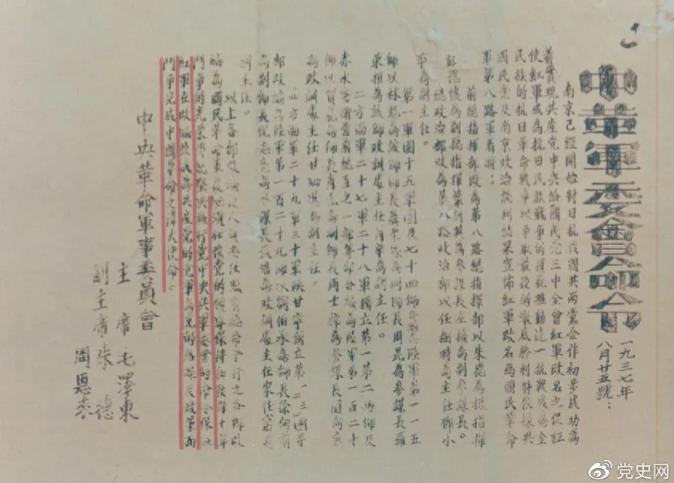 中革軍委會命令
一九三七年
八月廿五號：
南京已經開始對日抗戰國共兩党合作初步成功為
着實現共產党中央給國民党三中全會紅軍改名之保証
使紅軍成為抗日民族戰爭的模範推動這一抗戰成為全
民族的抗日革命戰爭以爭取最後的徹底勝利特依據與
國民党及南京政治談判結果宣佈紅軍改名為國民革命
軍第八路軍着將：
前總指揮部改為第八路總指揮部以朱德為總指揮
彭德懷為副總指揮葉剑英為參謀長左权為副參謀長。
總政治部改為第八路政治部以任弼時為主任鄧小
平為副主任。
第一軍團十五軍團及七十四師合編為陸軍第一一五
師以林彪為該師師長聶榮臻為副師長周昆為參謀長羅
榮桓為該師政訓處主任肖華為副主任。
二方面軍二十七軍二十八軍獨立第一第二兩師及
赤水警衛營前總直之一部等部合編為陸軍第一百二十
師以賀龍為師長肖克為副師長周士第為參謀長關向應
為政訓處主任甘泗淇為副主任。
四方面軍二十九軍三十軍陝甘寧獨立第一二三四等
師改編為陸軍第一百二十九師以劉伯承為師長徐向前
為副師長倪志亮為參謀長張浩為政訓處主任宋任窮為
副主任。
以上各師改編後人員委任照給予行之各師改
編為國民革命軍後必須加強党的領導保持和發揚十年
鬥爭的光榮傳統堅決執行党中央與軍委會的命令保証
紅軍在改編後成為共產党的党軍為党的路線及政策而
鬥爭完成中國革命之偉大使命。
中央革命軍事委員會
主席毛澤東
副主席朱德
周恩來
党史网